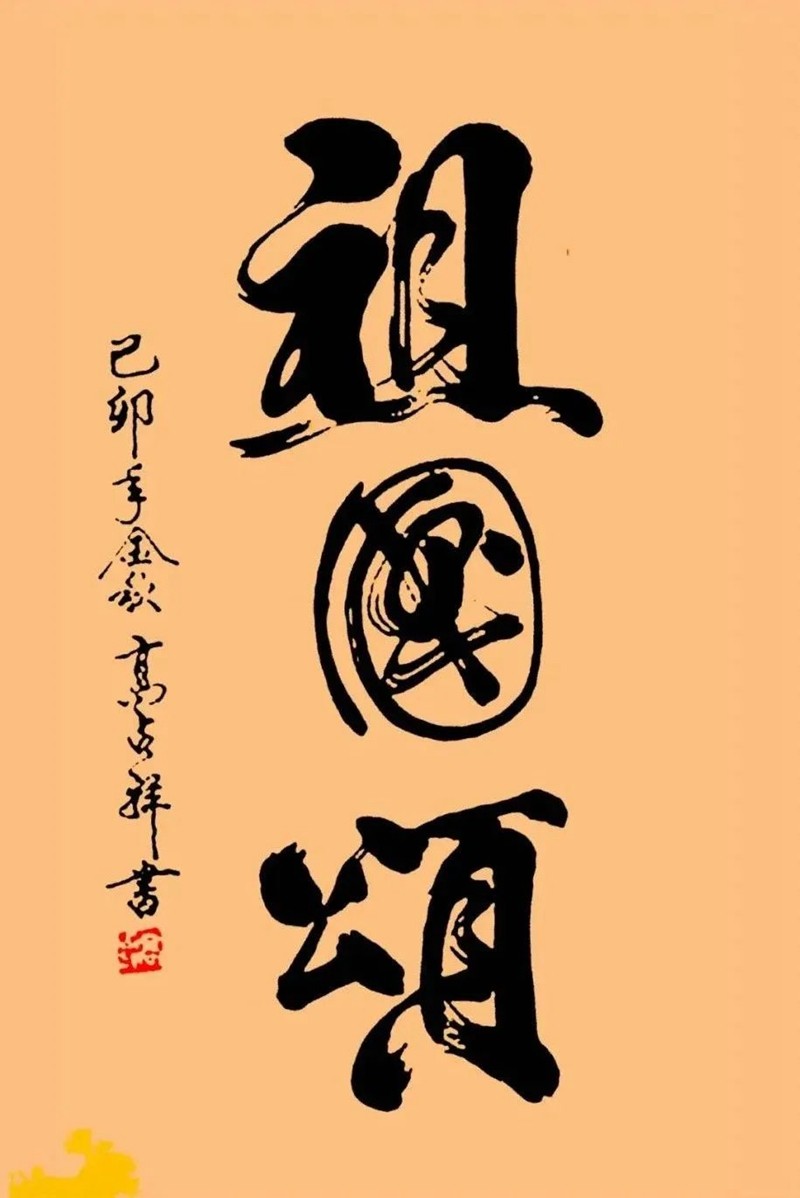 祖國頌
己卯年金秋 高占祥書